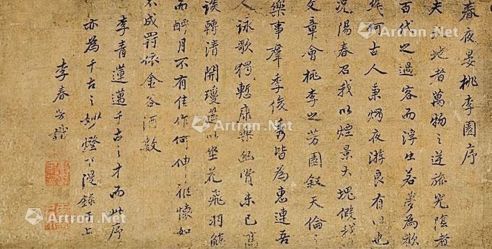 春夜宴桃李園序
夫地者萬物之逆旅光陰者
百代之過客而浮生若夢為歡
幾何古人秉燭夜游良有以也
况陽春召我以煙景大塊假我
文章會桃李之芳園叙天倫
樂事羣季俊秀皆為惠連吾
人詠歌獨慙康樂幽賞未已高
談轉清開瓊筵以坐花飛羽觴
而醉月不有佳作何伸雅懷如
不成罰依金谷酒數
李青蓮邁千古之才而此序
亦為千古之妙燈下漫錄上
李春芳識